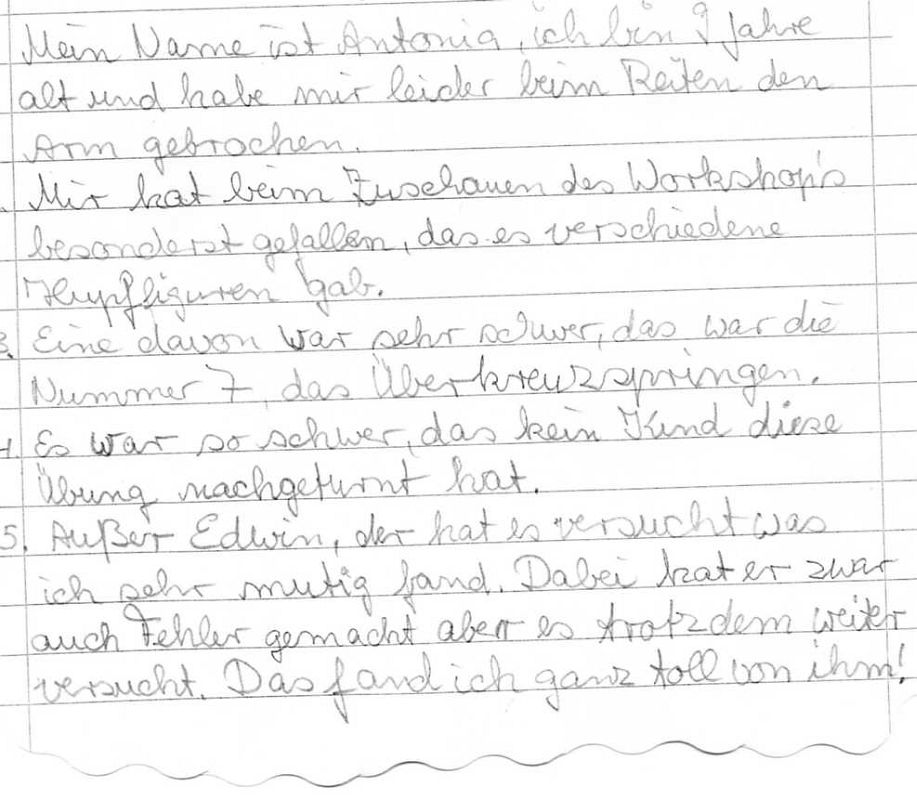 Mein Name ist Antonia, ich bin 9 Jahre
alt und habe mir leider beim Reiten den
Arm gebrochen.
Mir hat beim Zuschauen des Workshop's
besonderst gefallen, das es verschiedene
Hupffiguren gab.
3. Eine davon war sehr schwer, das war die
Nummer 7, das Überkreuzspringen.
4. Es war so schwer, das kein Kind diese
Übung nachgeturnt hat.
5. Außer Edwin, der hat es versucht was
ich sehr mutig fand. Dabei hat er zwar
auch Fehler gemacht aber es trotzdem weiter
versucht. Das fand ich ganz toll von ihm!